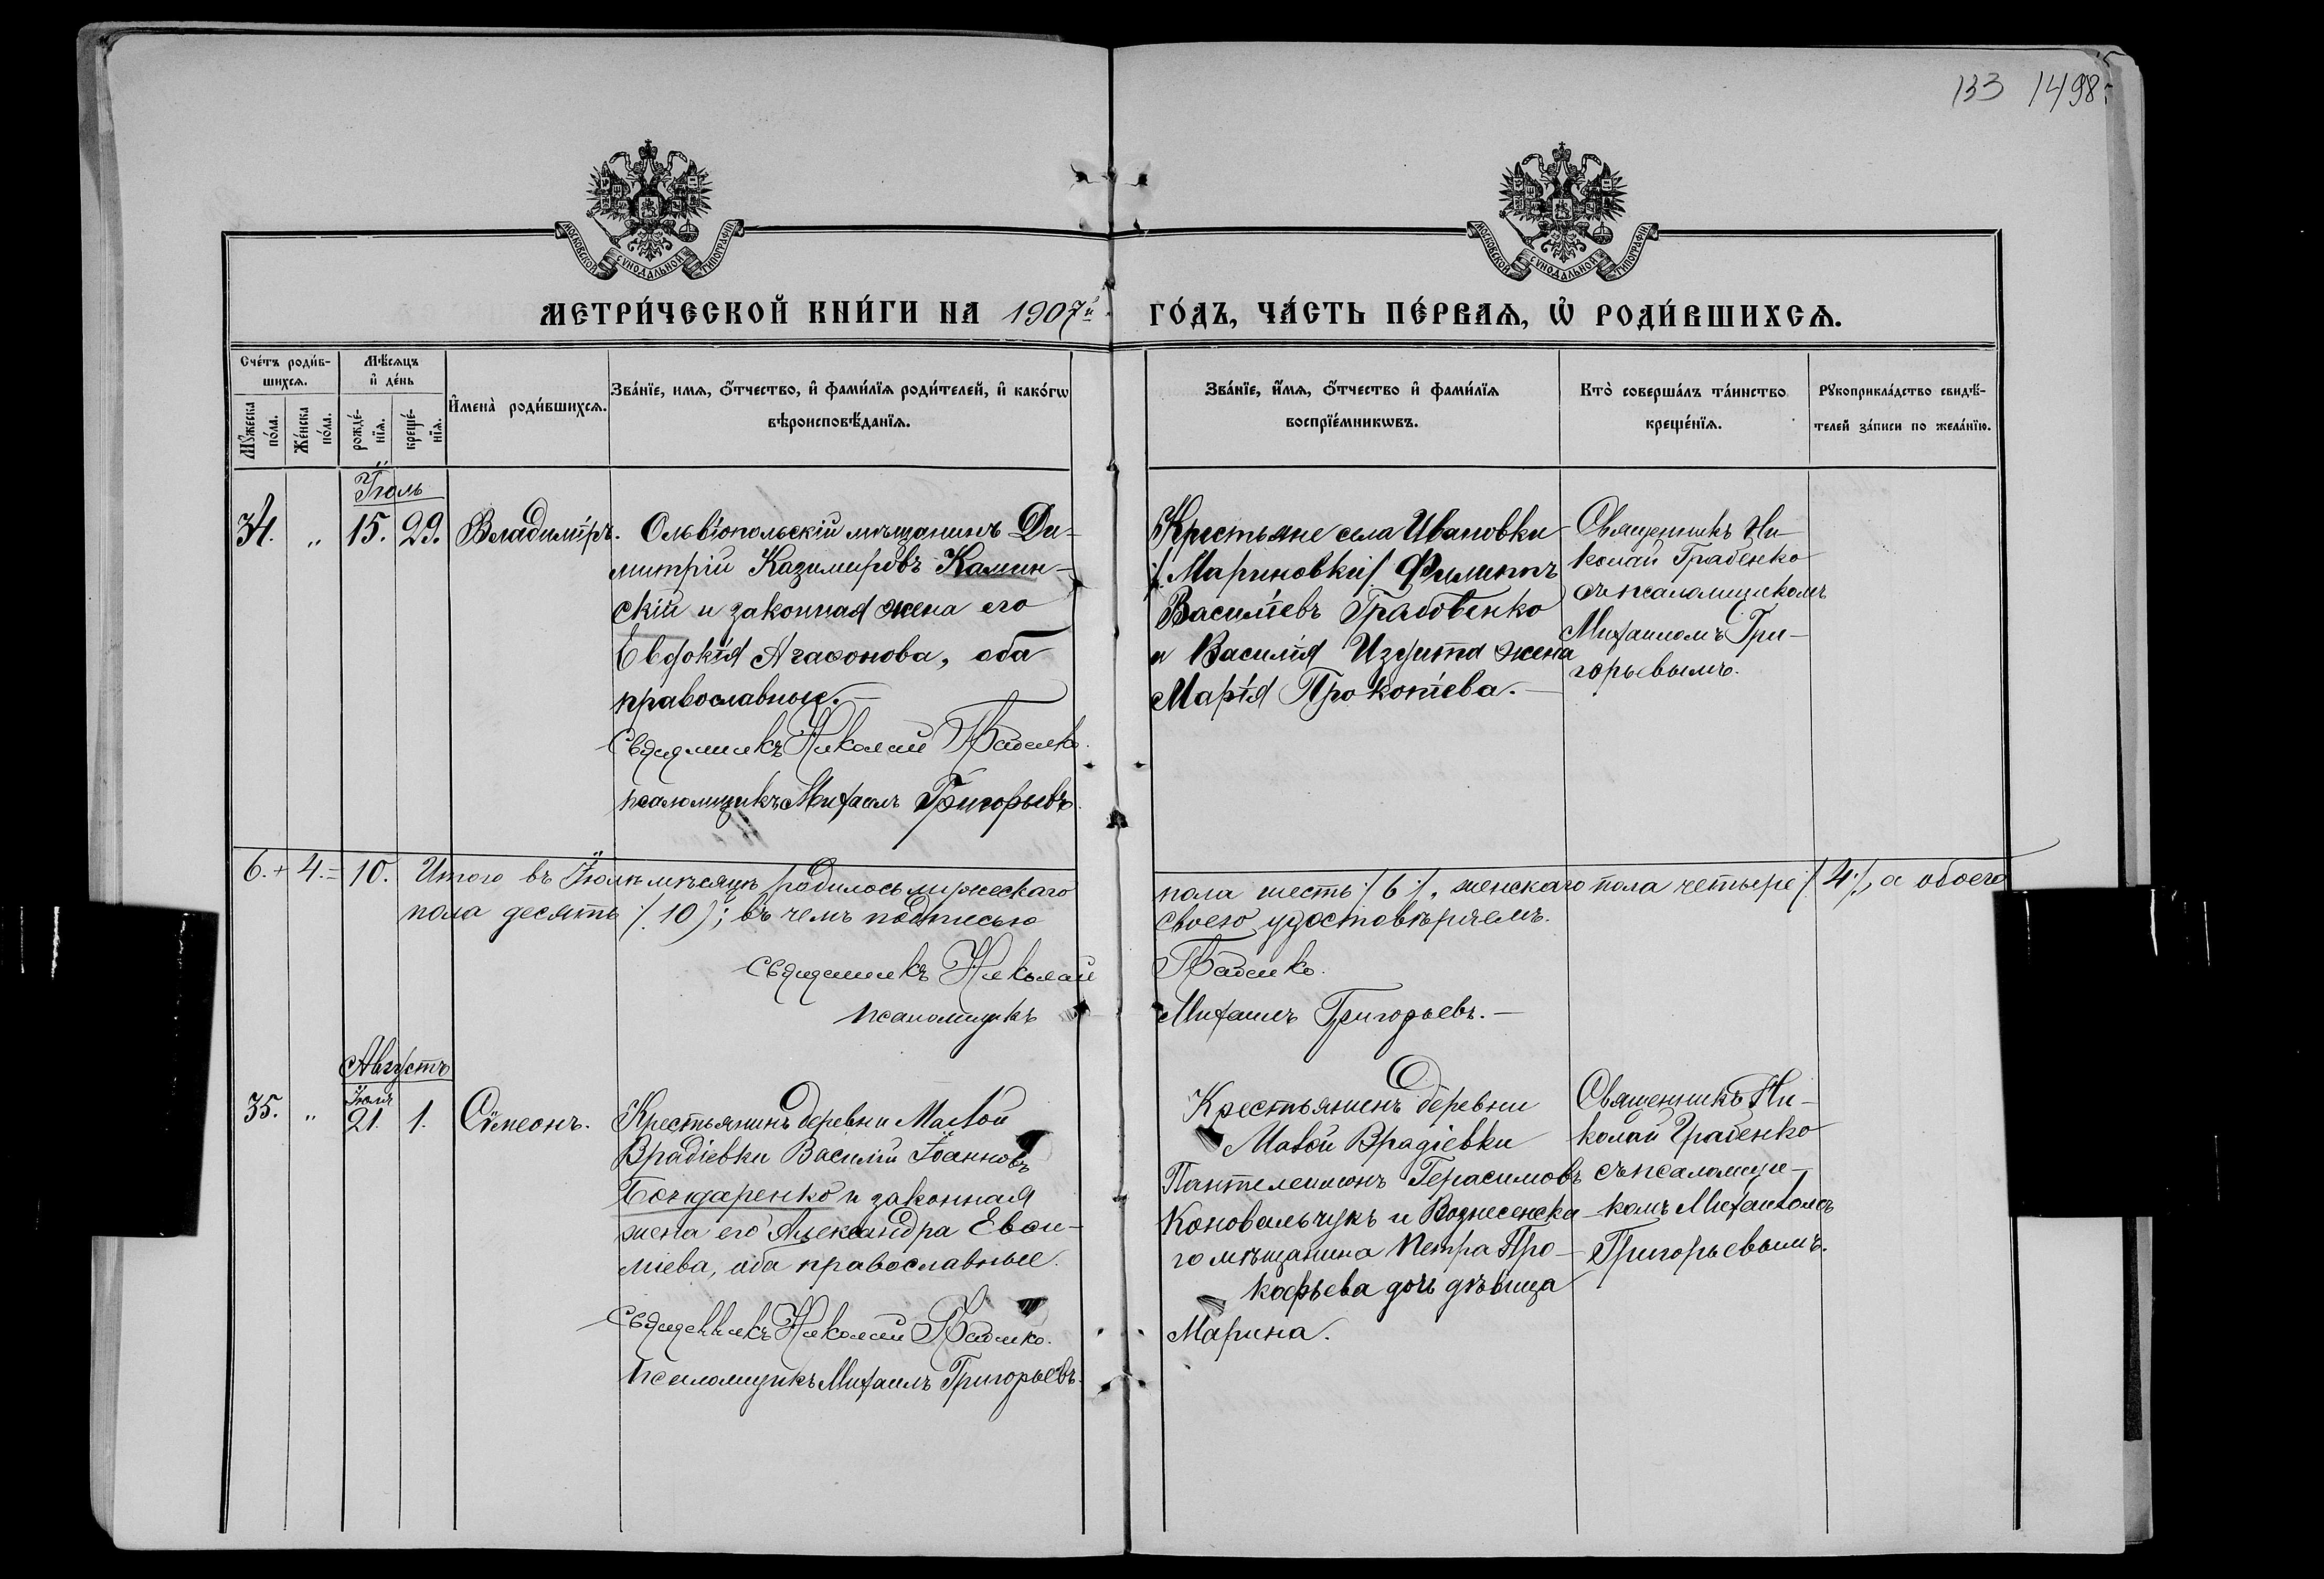 133 1498.
МОСКОВСКОЙ СѴНОДАЛЬНОЙ ТИПОГРАФІИ
МОСКОВСКОЙ СѴНОДАЛЬНОЙ ТИПОГРАФІИ
МЕТРИ́ЧЕСКОЙ КНИ́ГИ НА 1907й ГО́ДЪ, ЧА́СТЬ ПЕ́РВАѦ, Ѡ҆ РОДИ́ВШИХСѦ.
Сче́тъ роди́в-
шихсѧ.
Мꙋ́жеска
по́ла.
Же́нска
по́ла.
Мѣ́сѧцъ
и҆ де́нь
рожде́-
нїѧ.
креще́-
нїѧ.
И҆мена̀ роди́вшихсѧ.
Зва́нїе, имѧ, ѻ҆́тчество, и҆ фами́лїѧ роди́телей, и҆ како́гѡ
вѣроисповѣ́данїѧ.
Зва́нїе, и҆́мѧ, ѻ҆́тчество и҆ фами́лїѧ
воспрїе́мникѡвъ.
Кто̀ соверша́лъ та́инство
креще́нїѧ.
Рꙋкоприкла́дство свидѣ́-
телей за́писи по жела́нїю.
Іюль
34. „ 15. 29. Владиміръ.
Ольвіопольскій мѣщанинъ Ди-
митрій Казимировъ Камин-
скій и законная жена его
Евдокія Агаѳонова, оба
православные.
Священникъ Николай Грабенко.
псаломщикъ Михаилъ Григорьевъ.
Крестьяне села Ивановки
/Мариновки/ Филиппъ
Васильевъ Грабовенко
и Василія жена
Марія Прокопіева.
Священникъ Ни-
колай Грабенко
съ псаломщикомъ
Михаиломъ Гри-
горьевымъ.
6. + 4. = 10. Итого въ Іюлѣ мѣсяцѣ родилось мужескаго пола шесть /6/, женскаго пола четыре /4/, а обоего
пола десять /10/; въ чемъ подписью своею удостовѣряемъ.
Священникъ Николай Грабенко.
псаломщикъ Михаилъ Григорьевъ.
Августъ
Іюля
35. „ 21. 1. Сѵмеонъ.
Крестьянинъ деревни Малой
Врадіевки Василій Іоанновъ
Бондаренко и законная
жена его Александра Евѳи-
міева, оба православные.
Священникъ Николай Грабенко.
Псаломщикъ Михаилъ Григорьевъ.
Крестьянинъ деревни
Малой Врадіевки
Пантелеимонъ Герасимовъ
Коновальчукъ и Вознесенска-
го мѣщанина Петра Про-
кофьева дочь дѣвица
Марина.
Священникъ Ни-
колай Грабенко
съ псаломщи-
комъ Михаиломъ
Григорьевымъ.